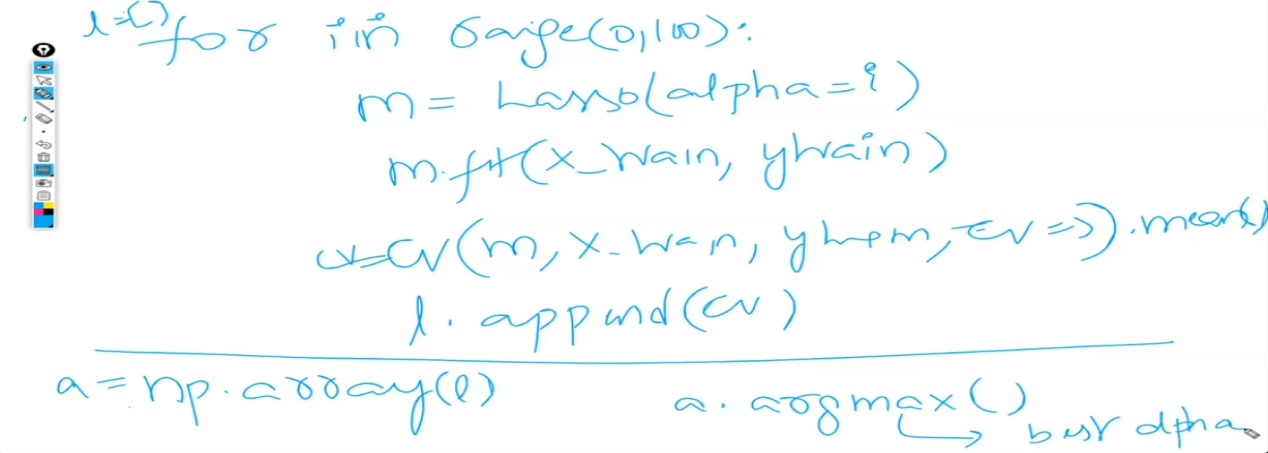 l=[]
for i in range(0,100):
m = Lasso(alpha=i)
m.fit(x_train, ytrain)
cv=CV(m, x_train, ytrain, cv=5).mean()
l.append(cv)
a = np.array(l)
a.argmax()
best alpha